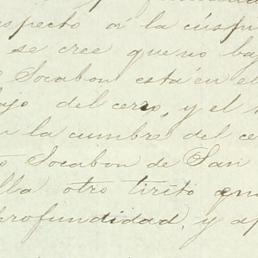 respecto á la cúspi
se cree que no ba
Socabon está en el
ajo del cerro, y el
n la cumbre del ce
o Socabon de San
lla otro tirito que
profundidad, y ap